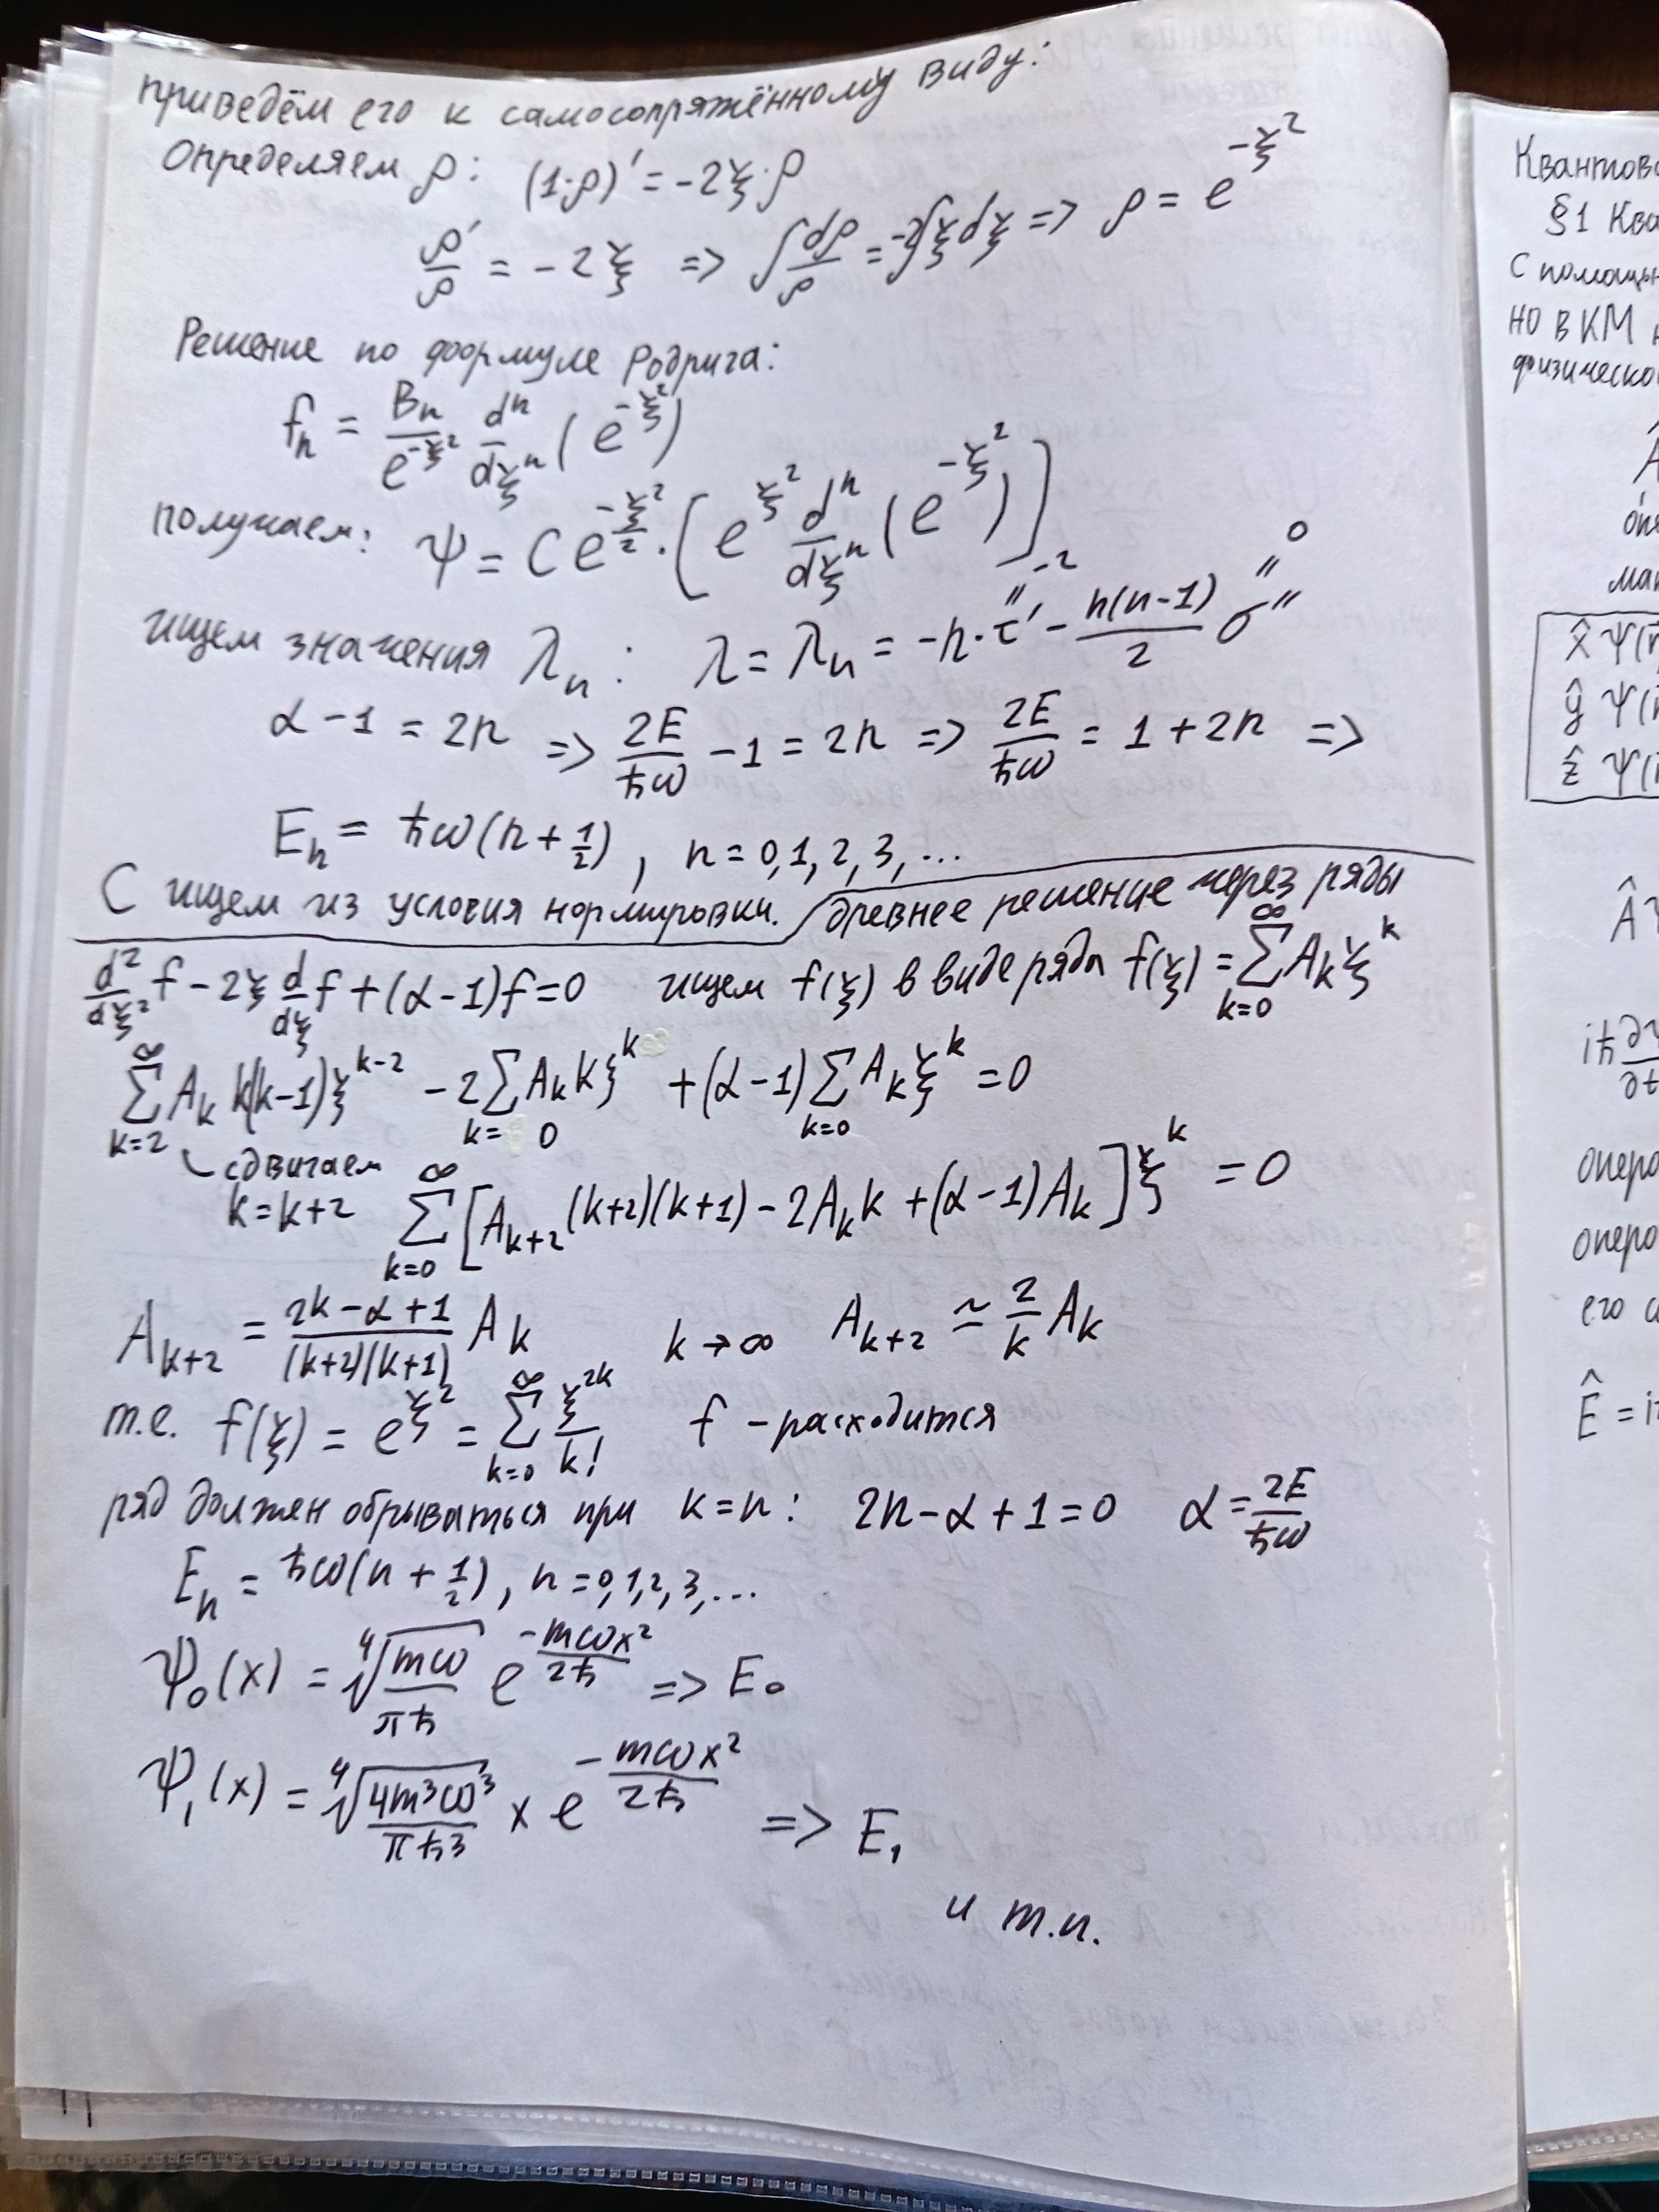 приведём его к самосопряжённому виду:
Определяем ρ: (1·ρ)' = -2ξ·ρ
ρ'/ρ = -2ξ => ∫dρ/ρ = -2∫ξdξ => ρ = e^{-ξ²}
Решение по формуле Родрига:
fₙ = Bₙ/e^{-ξ²} dⁿ/dξⁿ (e^{-ξ²})
получаем: Ψ = C e^{-ξ²/2} · [e^{ξ²} dⁿ/dξⁿ (e^{-ξ²})]
-2 0
" "
ищем значения λₙ: λ = λₙ = -n·τ' - n(n-1)/2 σ''
α - 1 = 2n => 2E/ħω - 1 = 2n => 2E/ħω = 1 + 2n =>
Eₙ = ħω(n + 1/2), n = 0, 1, 2, 3, ...
C ищем из условия нормировки.
древнее решение через ряды
d²/dξ² f - 2ξ d/dξ f + (α - 1)f = 0 ищем f(ξ) в виде ряда f(ξ) = ∑_{k=0}^{∞} A_k ξ^k
∑_{k=2}^{∞} A_k k(k-1)ξ^{k-2} - 2∑_{k=0} A_k k ξ^k + (α-1)∑_{k=0} A_k ξ^k = 0
сдвигаем
k = k+2 ∑_{k=0}^{∞} [A_{k+2}(k+2)(k+1) - 2A_k k + (α-1)A_k] ξ^k = 0
A_{k+2} = (2k - α + 1)/((k+2)(k+1)) A_k k → ∞ A_{k+2} ≃ 2/k A_k
т.е. f(ξ) = e^{ξ²} = ∑_{k=0}^{∞} ξ^{2k}/k! f - расходится
ряд должен обрываться при k = n: 2n - α + 1 = 0 α = 2E/ħω
Eₙ = ħω(n + 1/2), n = 0, 1, 2, 3, ...
Ψ₀(x) = ⁴√(mω/πħ) e^{-mωx²/2ħ} => E₀
Ψ₁(x) = ⁴√(4m³ω³/πħ³) x e^{-mωx²/2ħ} => E₁
и т.п.
§1 Ква
С помощью
но в КМ
Â
x̂ Ψ(
ŷ Ψ(
ẑ Ψ(
ÂΨ
iħ∂Ψ/∂t
опера
опера
его с
Ê = i